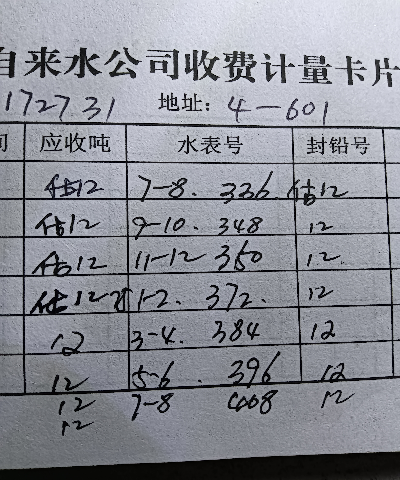 自来水公司收费计量卡片
172731 地址: 4-601
应收吨 水表号 封铅号
估12 7-8. 336 估12
估12 9-10. 348 12
估12 11-12 360 12
估12 1-2. 372. 12
12 3-4. 384 12
12 5-6. 396 12
12 7-8 408 12
12